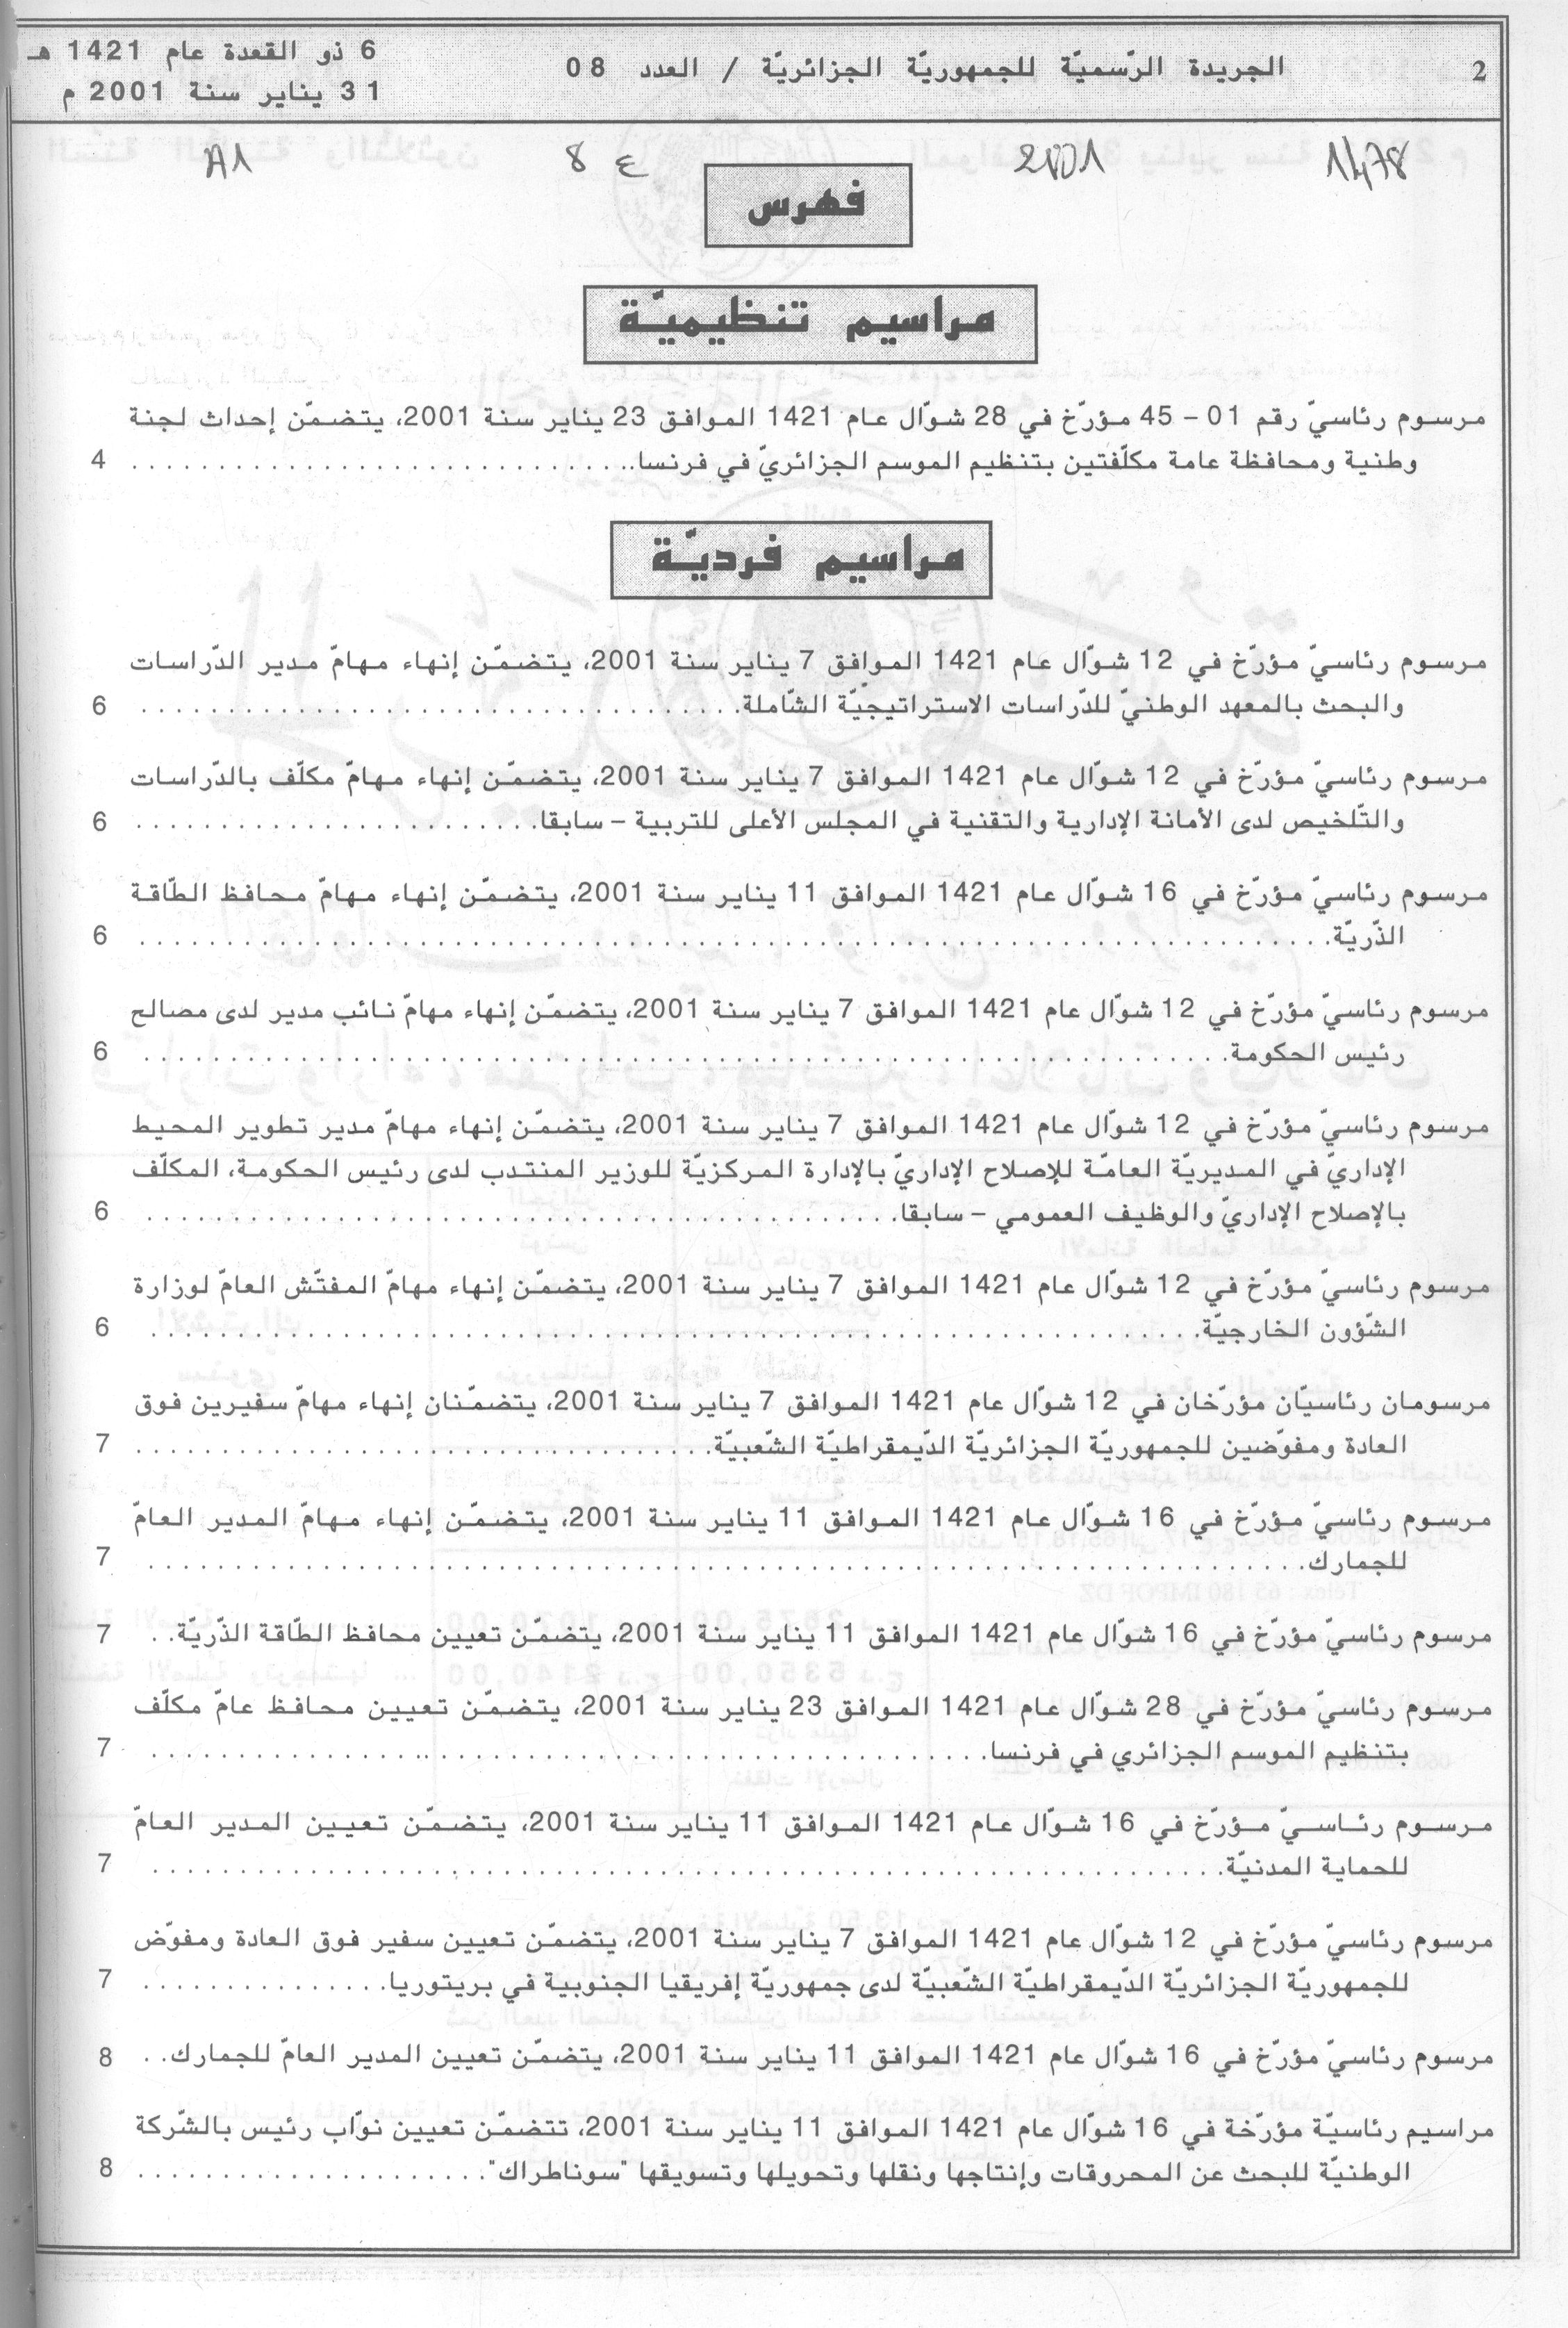 2
الجريدة الرّسميّة للجمهوريّة الجزائريّة / العدد 08
6 ذو القعدة عام 1421 هـ
31 يناير سنة 2001 م
1478
2001
8 ع
A1
فهرس
مراسيم تنظيميّة
مرسوم رئاسيّ رقم 01 – 45 مؤرّخ في 28 شوّال عام 1421 الموافق 23 يناير سنة 2001، يتضمّن إحداث لجنة
وطنية ومحافظة عامة مكلّفتين بتنظيم الموسم الجزائريّ في فرنسا.............................. 4
مراسيم فرديّة
مرسوم رئاسيّ مؤرّخ في 12 شوّال عام 1421 الموافق 7 يناير سنة 2001، يتضمّن إنهاء مهامّ مدير الدّراسات
والبحث بالمعهد الوطنيّ للدّراسات الاستراتيجيّة الشّاملة.................................... 6
مرسوم رئاسيّ مؤرّخ في 12 شوّال عام 1421 الموافق 7 يناير سنة 2001، يتضمّن إنهاء مهامّ مكلّف بالدّراسات
والتّلخيص لدى الأمانة الإدارية والتقنية في المجلس الأعلى للتربية – سابقا........................ 6
مرسوم رئاسيّ مؤرّخ في 16 شوّال عام 1421 الموافق 11 يناير سنة 2001، يتضمّن إنهاء مهامّ محافظ الطّاقة
الذّريّة....................................................................... 6
مرسوم رئاسيّ مؤرّخ في 12 شوّال عام 1421 الموافق 7 يناير سنة 2001، يتضمّن إنهاء مهامّ نائب مدير لدى مصالح
رئيس الحكومة................................................................. 6
مرسوم رئاسيّ مؤرّخ في 12 شوّال عام 1421 الموافق 7 يناير سنة 2001، يتضمّن إنهاء مهامّ مدير تطوير المحيط
الإداريّ في المديريّة العامّة للإصلاح الإداريّ بالإدارة المركزيّة للوزير المنتدب لدى رئيس الحكومة، المكلّف
بالإصلاح الإداريّ والوظيف العمومي – سابقا............................................. 6
مرسوم رئاسيّ مؤرّخ في 12 شوّال عام 1421 الموافق 7 يناير سنة 2001، يتضمّن إنهاء مهامّ المفتّش العامّ لوزارة
الشّؤون الخارجيّة............................................................... 6
مرسومان رئاسيّان مؤرّخان في 12 شوّال عام 1421 الموافق 7 يناير سنة 2001، يتضمّنان إنهاء مهامّ سفيرين فوق
العادة ومفوّضين للجمهوريّة الجزائريّة الدّيمقراطيّة الشّعبيّة................................... 7
مرسوم رئاسيّ مؤرّخ في 16 شوّال عام 1421 الموافق 11 يناير سنة 2001، يتضمّن إنهاء مهامّ المدير العامّ
للجمارك..................................................................... 7
مرسوم رئاسيّ مؤرّخ في 16 شوّال عام 1421 الموافق 11 يناير سنة 2001، يتضمّن تعيين محافظ الطّاقة الذّريّة.. 7
مرسوم رئاسيّ مؤرّخ في 28 شوّال عام 1421 الموافق 23 يناير سنة 2001، يتضمّن تعيين محافظ عامّ مكلّف
بتنظيم الموسم الجزائري في فرنسا.................................................. 7
مرسوم رئاسيّ مؤرّخ في 16 شوّال عام 1421 الموافق 11 يناير سنة 2001، يتضمّن تعيين المدير العامّ
للحماية المدنيّة................................................................ 7
مرسوم رئاسيّ مؤرّخ في 12 شوّال عام 1421 الموافق 7 يناير سنة 2001، يتضمّن تعيين سفير فوق العادة ومفوّض
للجمهوريّة الجزائريّة الدّيمقراطيّة الشّعبيّة لدى جمهوريّة إفريقيا الجنوبية في بريتوريا............... 7
مرسوم رئاسيّ مؤرّخ في 16 شوّال عام 1421 الموافق 11 يناير سنة 2001، يتضمّن تعيين المدير العامّ للجمارك.. 8
مراسيم رئاسيّة مؤرّخة في 16 شوّال عام 1421 الموافق 11 يناير سنة 2001، تتضمّن تعيين نوّاب رئيس بالشّركة
الوطنيّة للبحث عن المحروقات وإنتاجها ونقلها وتحويلها وتسويقها "سوناطراك"..................... 8